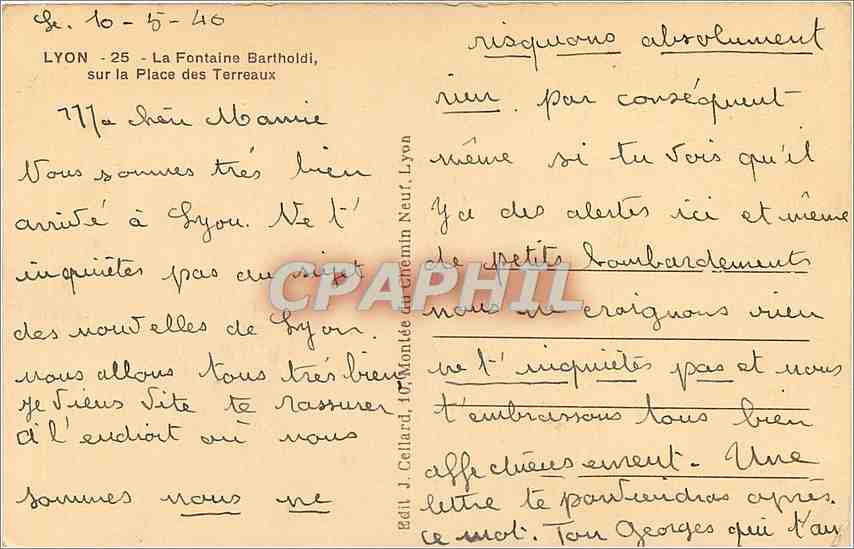 Le. 10-5-40
LYON - 25 - La Fontaine Bartholdi,
sur la Place des Terreaux
Ma chère Mamie
Nous sommes très bien
arrivé à Lyon. Ne t'
inquiètes pas au sujet
des nouvelles de Lyon.
nous allons tous très bien
je viens vite te rassurer
à l'endroit où nous
sommes nous ne
Edit J. Cellard, 10, Montée du Chemin Neuf, Lyon
risquons absolument
rien. par conséquent
même si tu vois qu'il
y a des alertes ici et même
de petits bombardements
nous ne craignons rien
ne t'inquiétés pas et nous
t'embrassons tous bien
affectueusement. Une
lettre te parviendras après
ce mot. Ton Georges qui t'
CPAPHIL